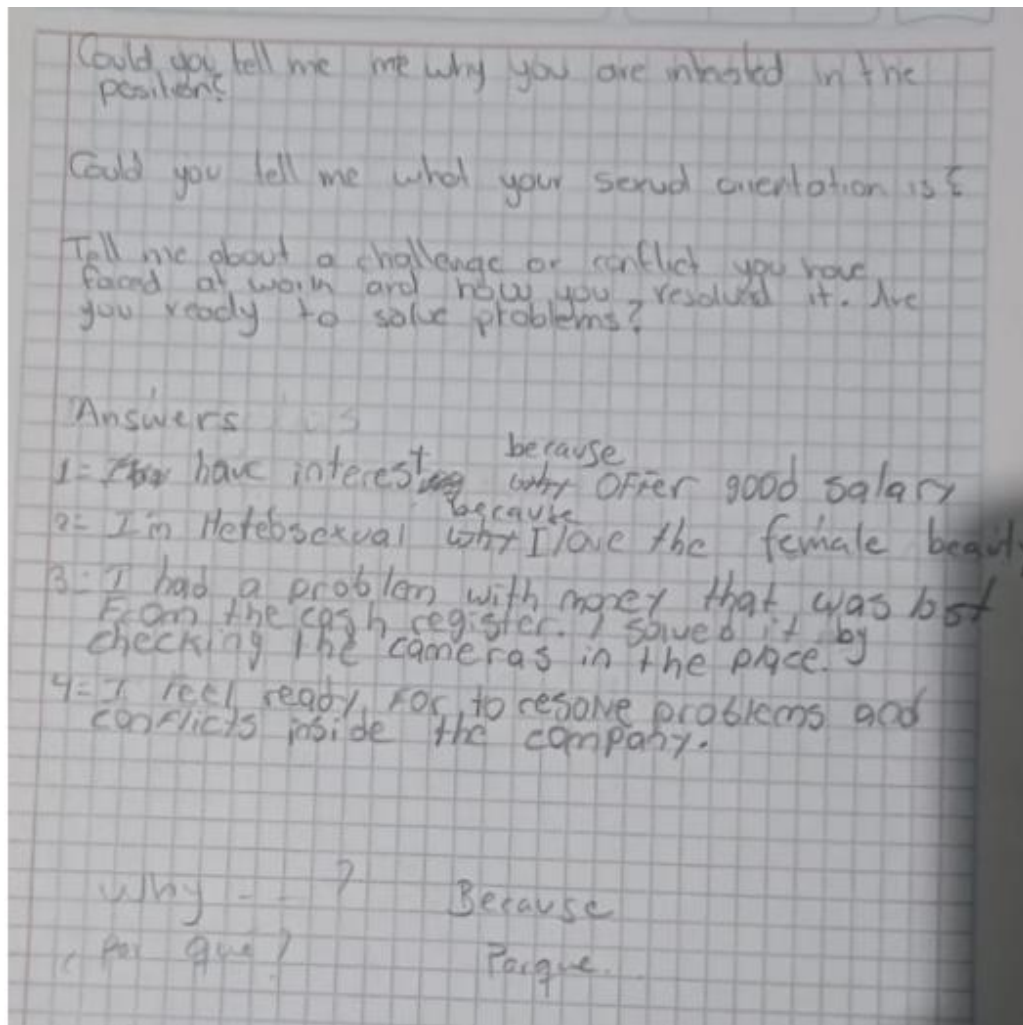 Could you tell me me why you are intested in the
position?
Could you tell me what your sexual orientation is ?
Tell me about a challenge or conflict you have
faced at work and how you resolved it. Are
you ready to solve problems?
Answers
because
1= have interest why OFFer good salary
because
2= I'm Hetebsexual why I love the female beauty
3= I had a problem with money that was lost
From the cash register. I solved it by
checking the cameras in the place.
4= I feel ready For to resolve problems and
conflicts inside the company.
Why -- ? Because
¿ Por que? Porque...